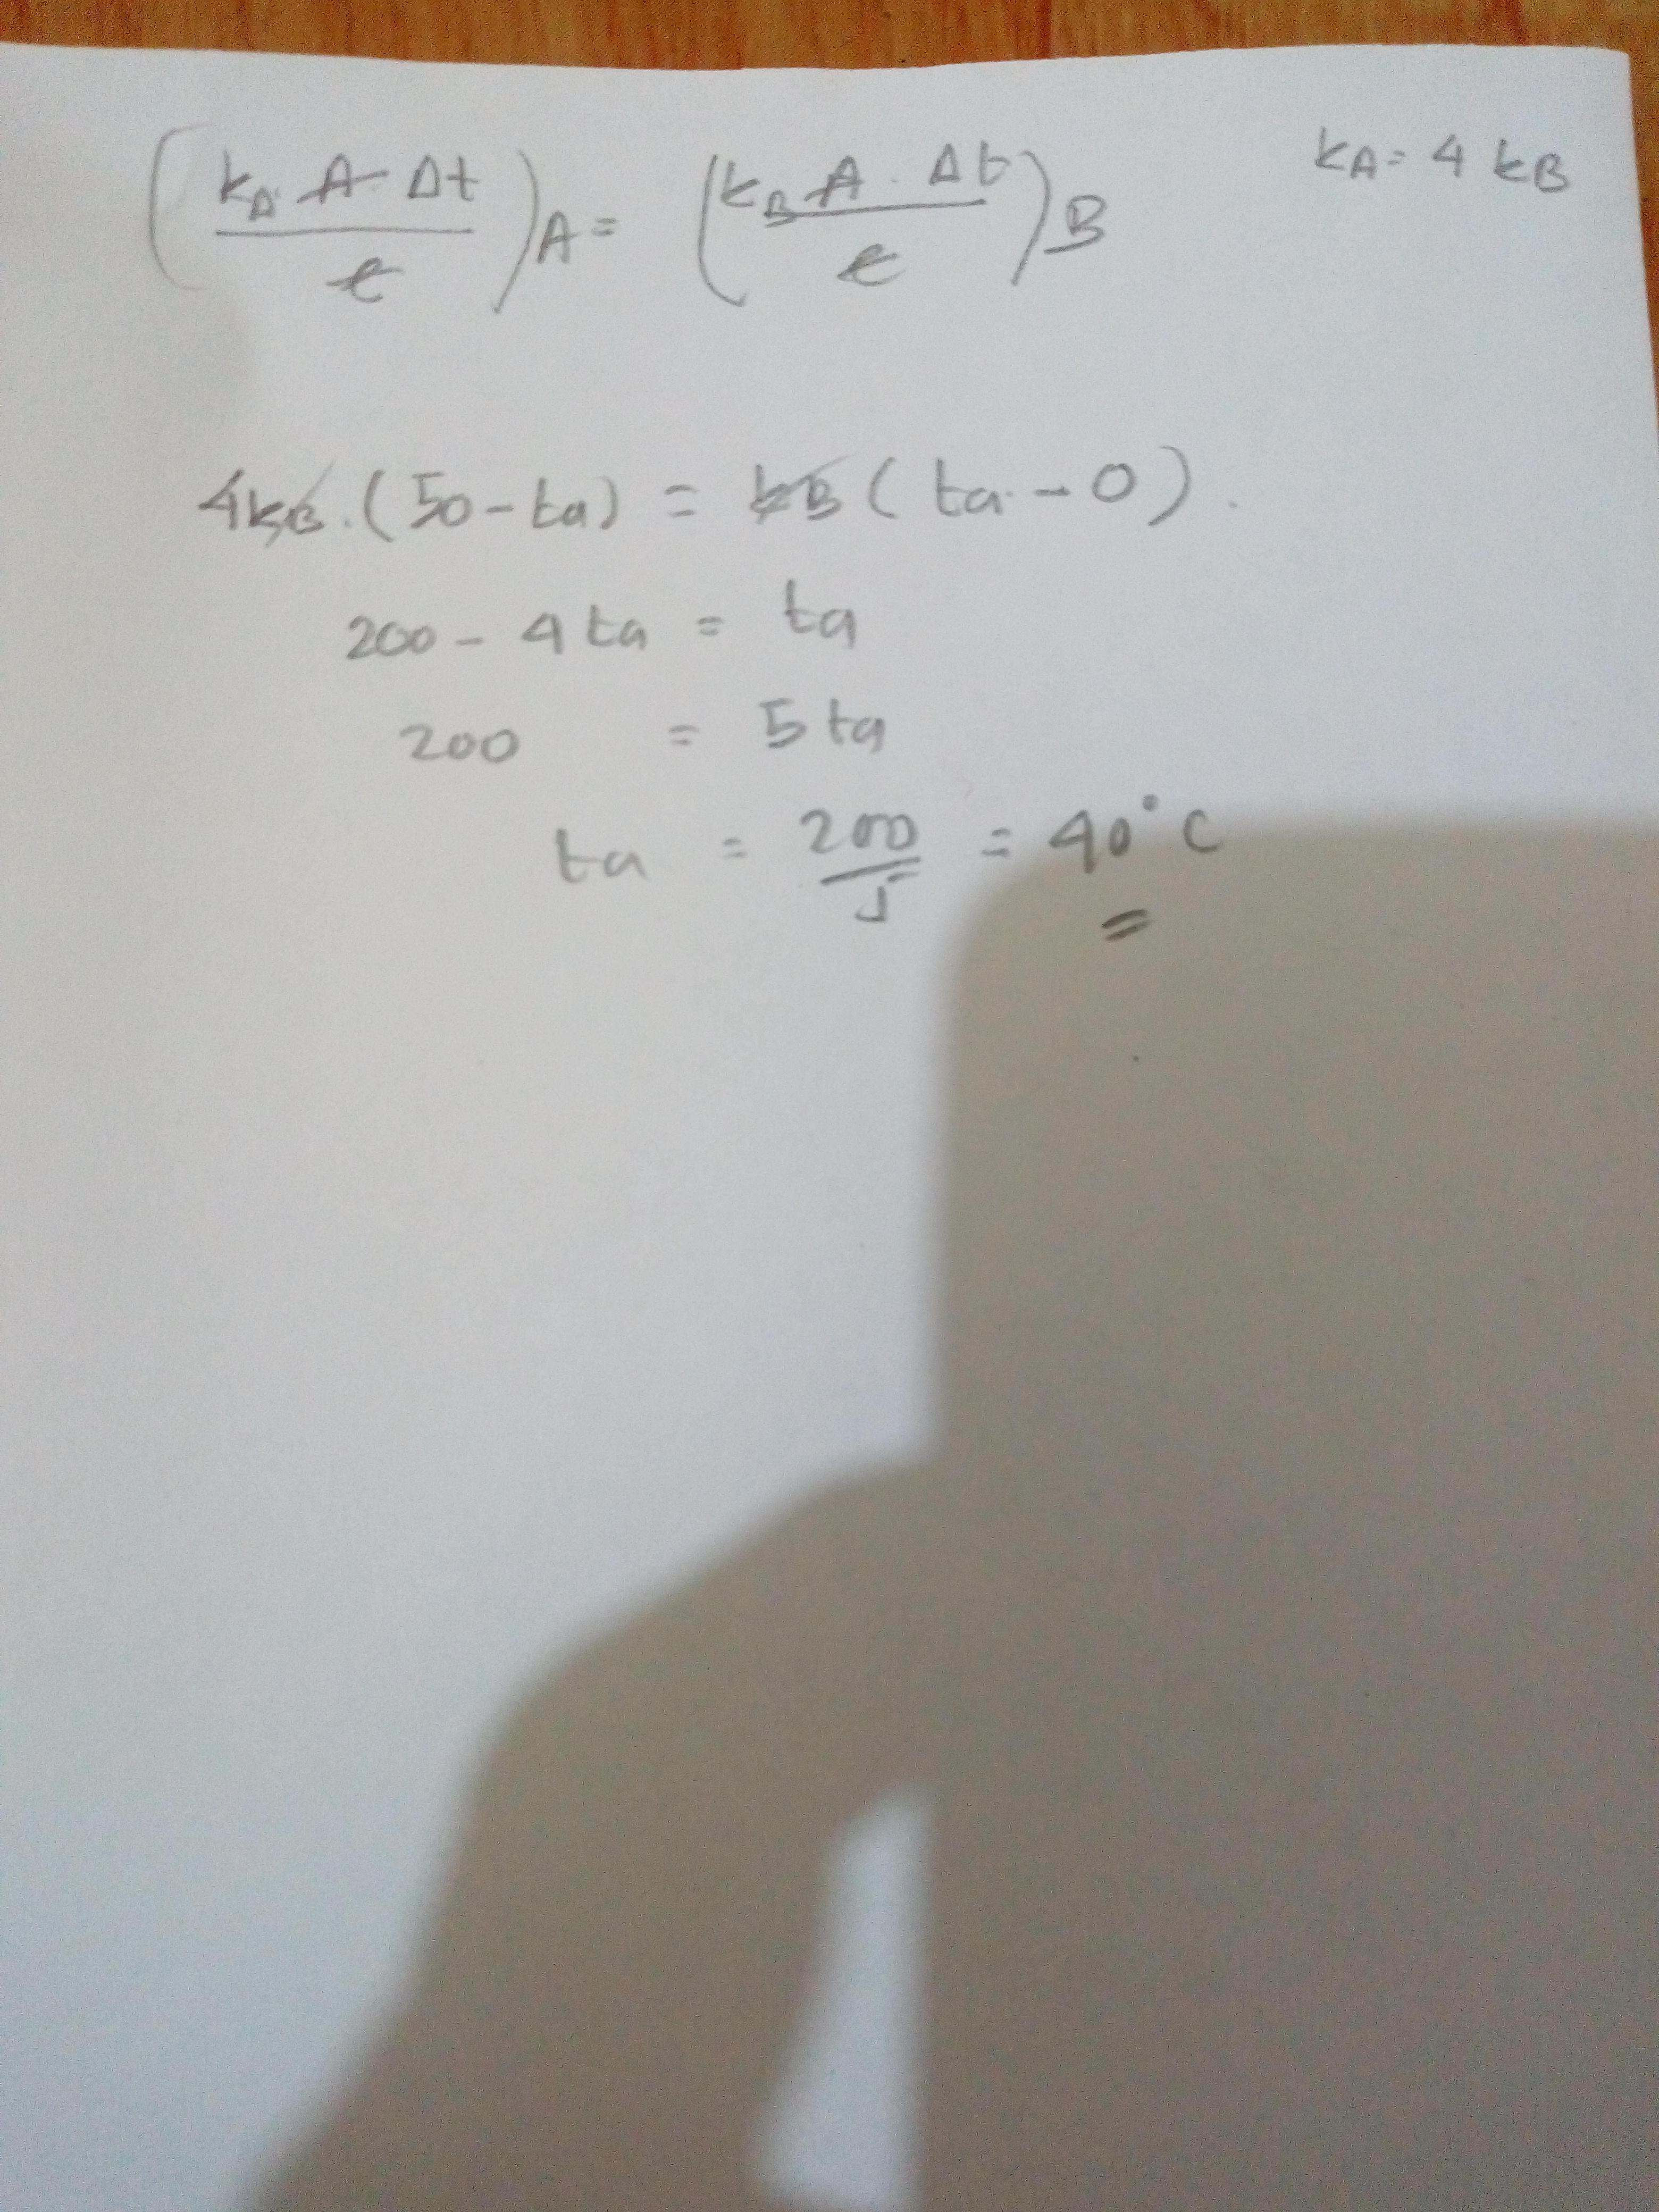 (kA. A. Δt / ℓ)A = (kB A . Δt / ℓ)B kA = 4 kB
4kB . (50 - ta) = kB ( ta - 0 ) .
200 - 4 ta = ta
200 = 5 ta
ta = 200 / 5 = 40° C